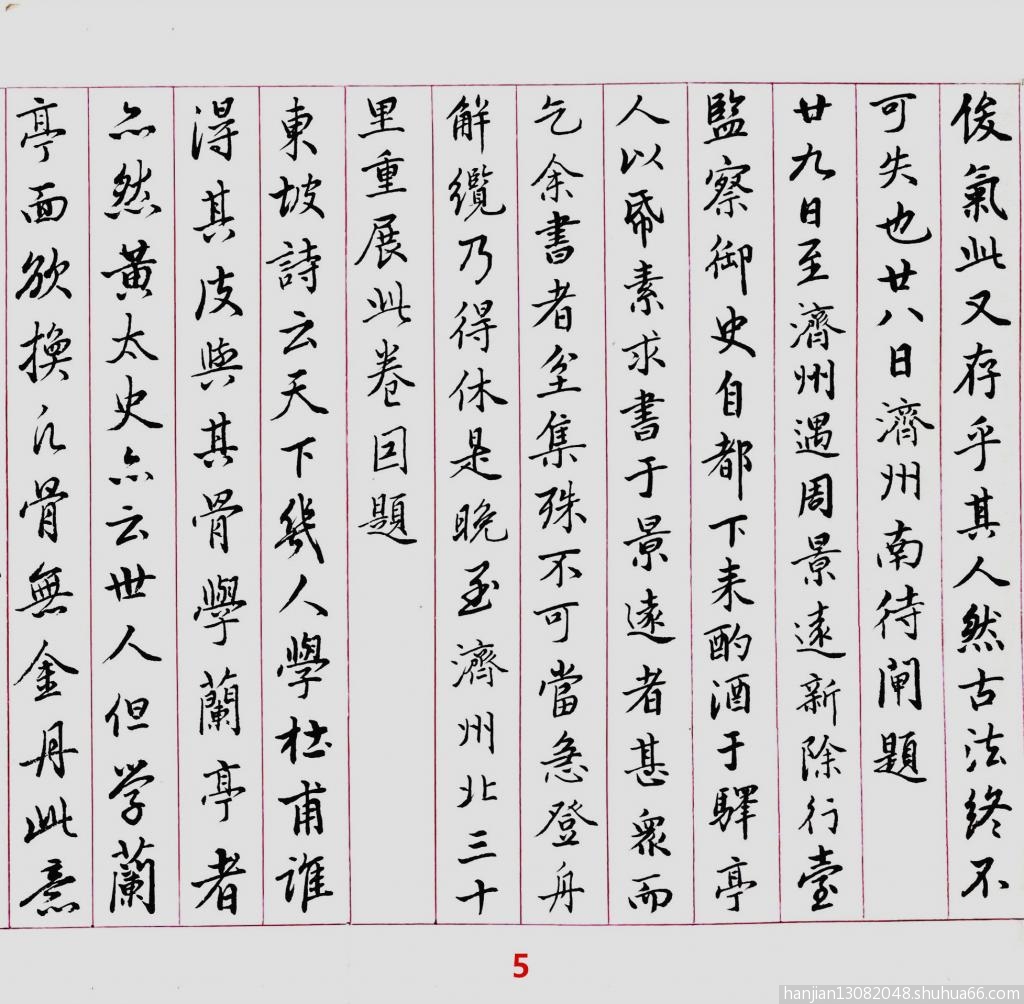 俊氣此又存乎其人然古法終不
可失也廿八日濟州南待閘題
廿九日至濟州遇周景遠新除行臺
監察御史自都下来酌酒于驛亭
人以帋素求書于景遠者甚衆而
乞余書者坌集殊不可當急登舟
解纜乃得休是晚至濟州北三十
里重展此卷因題
東坡詩云天下幾人學杜甫誰
得其皮與其骨學蘭亭者
亦然黄太史亦云世人但学蘭
亭面欲換凡骨無金丹此意
5
hanjian13082048.shuhua66.com